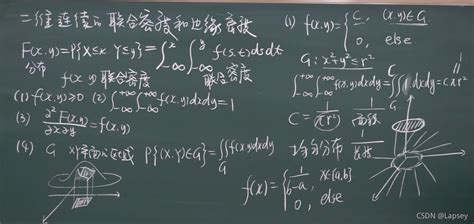 二维连续的联合密度和边缘密度
F(x,y)=P{X≤x Y≤y}=∫_{-∞}^{x}∫_{-∞}^{y}f(s,t)dsdt
分布
f(x,y) 联合密度 联合密度
(1) f(x,y)≥0 (2) ∫_{-∞}^{+∞}∫_{-∞}^{+∞}f(x,y)dxdy=1
(3) ∂²F(x,y)/∂x∂y=f(x,y)
(4) G xy平面的区域 P{(X,Y)∈G}=∬_G f(x,y)dxdy
(1) f(x,y)={C, (x,y)∈G
0, else
G: x²+y²≤r²
∫_{-∞}^{+∞}∫_{-∞}^{+∞}f(x,y)dxdy=∬_G dxdy=Cπr²
C=1/(πr²) 1/面积
均匀分布 1/长度
f(x)={1/(b-a), x∈[a,b]
0, else
G
CSDN @Lapsey